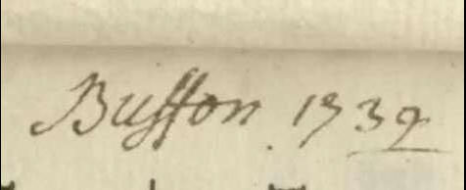 Buffon. 1739